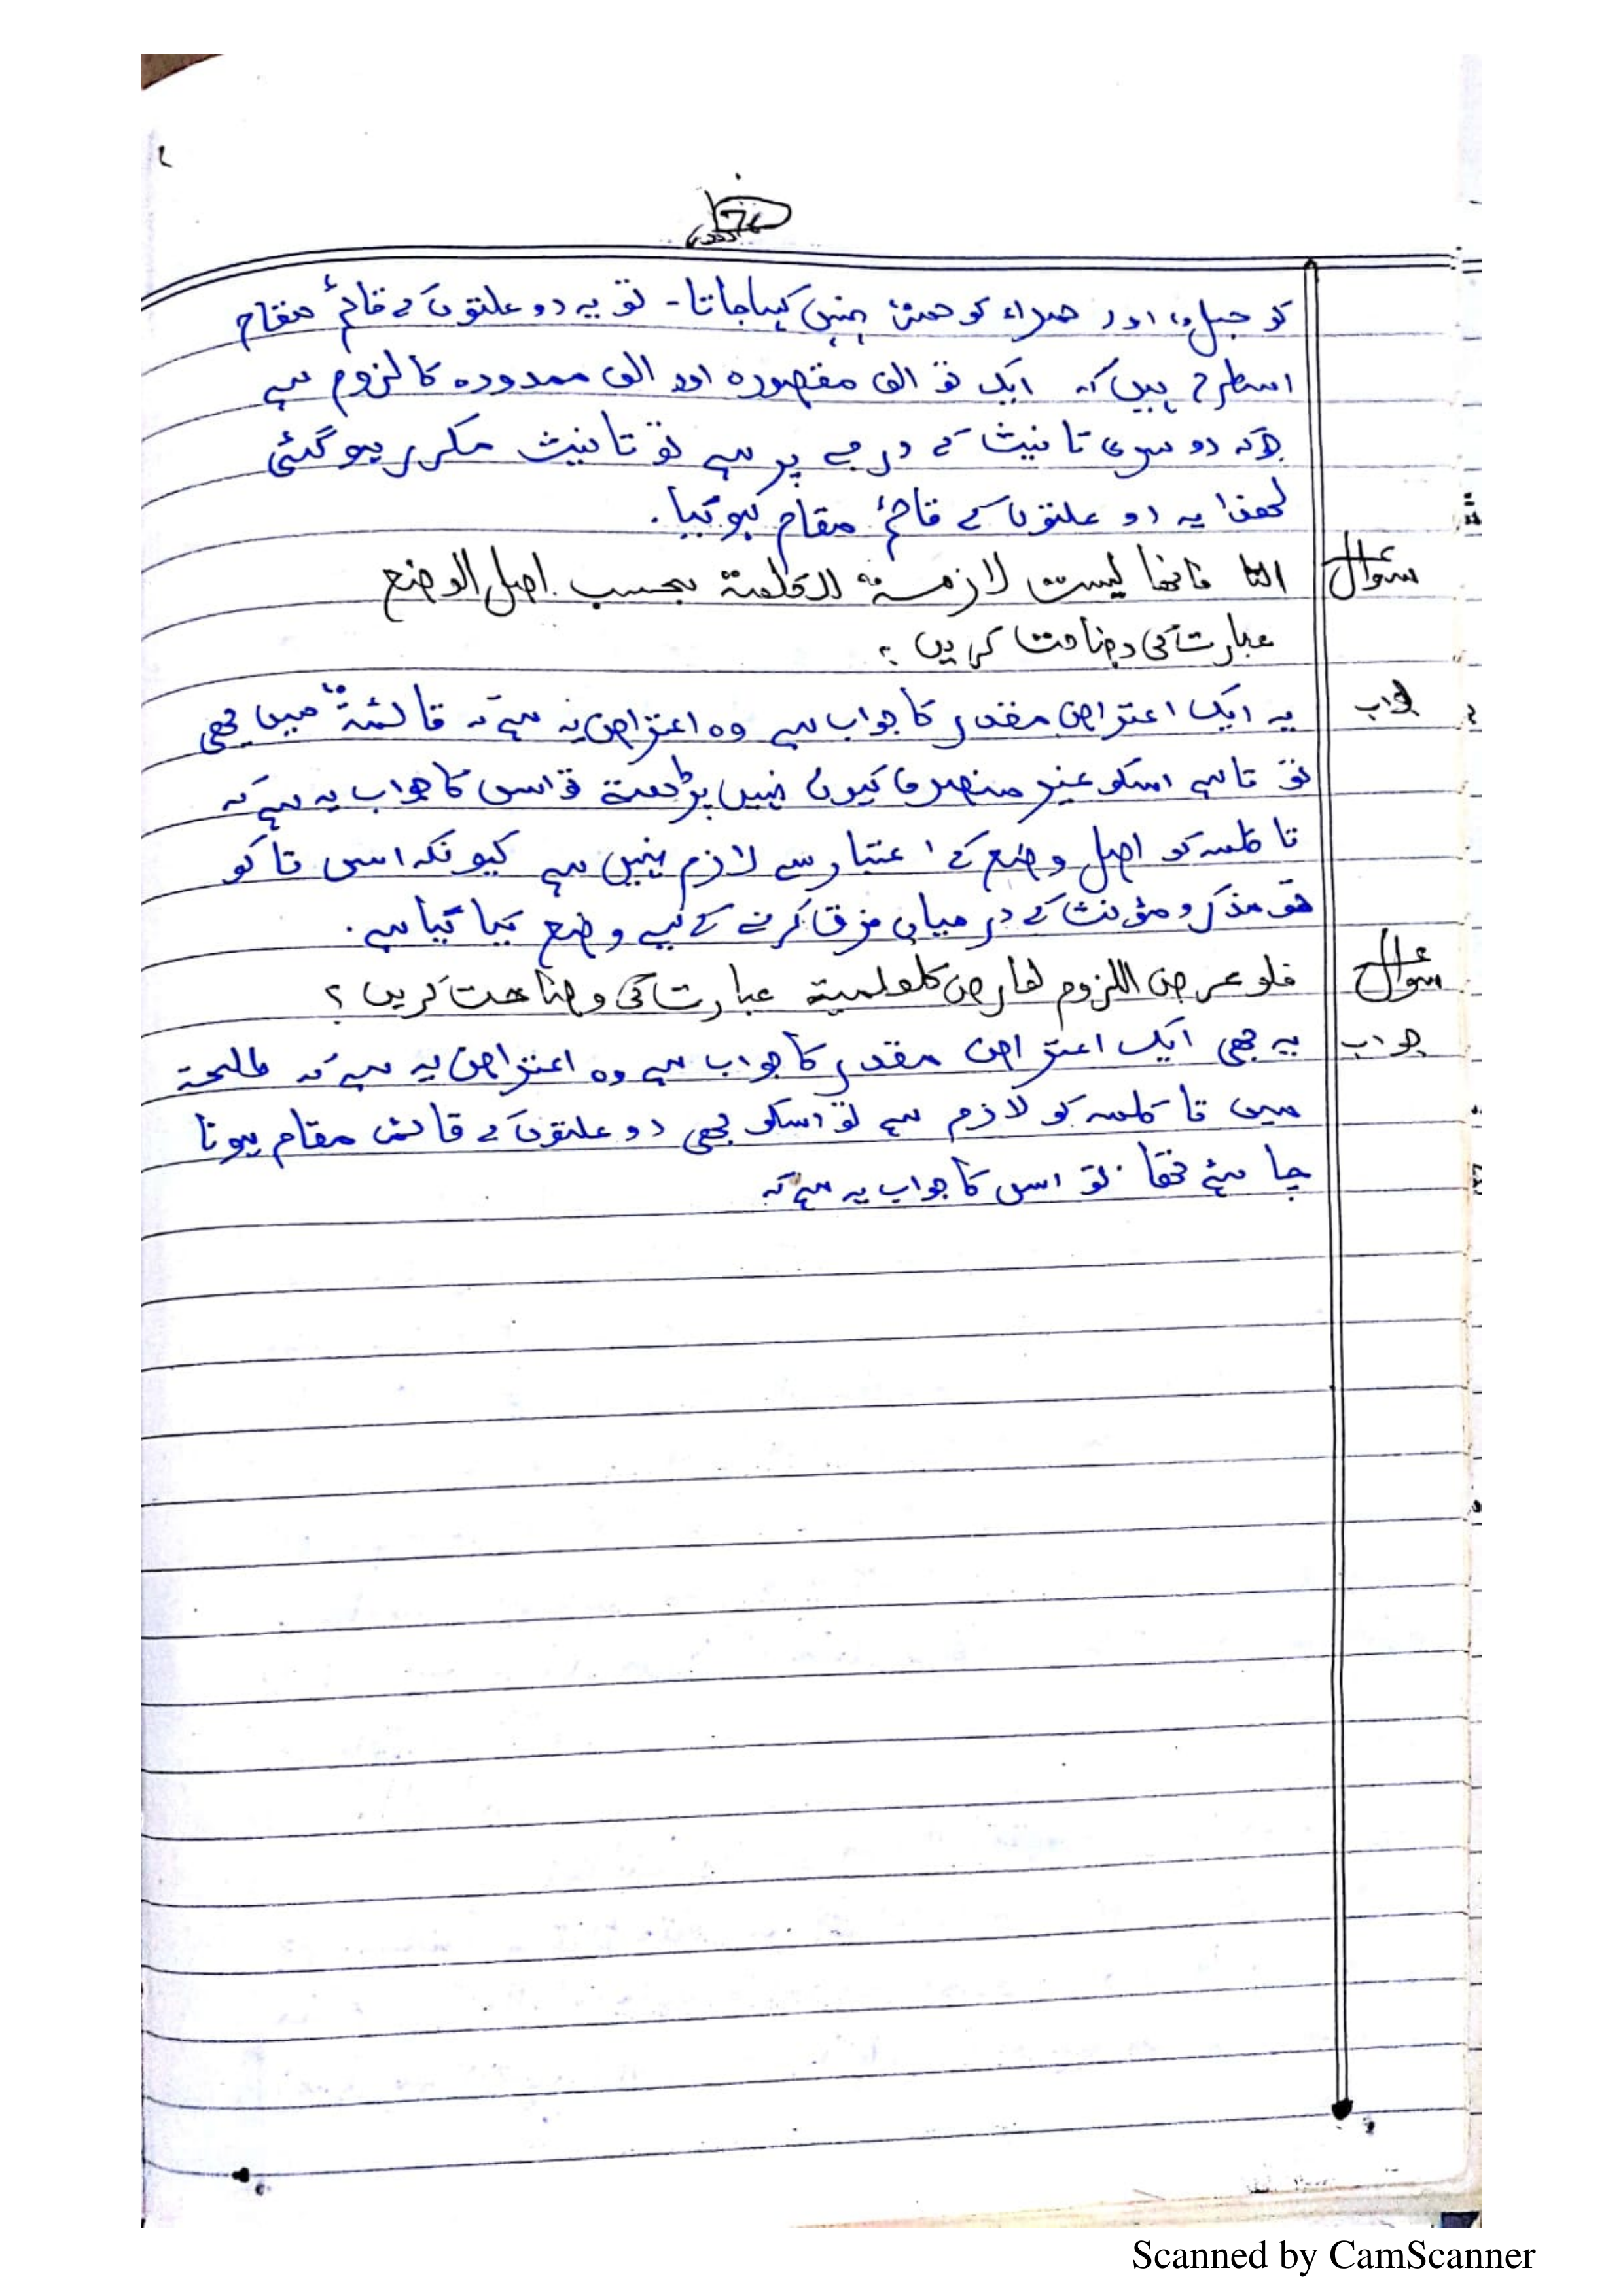 کو حبل، اور حمراء کو حمر نہیں کہا جاتا۔ تو یہ دو علتوں کے قائم مقام
اسطرح ہیں کہ ایک تو الف مقصورہ اور الف ممدودہ کا لزوم ہے
جوکہ دوسری تانیث کے درجے پر ہے تو تانیث مکرر ہوگئی
لھذا یہ دو علتوں کے قائم مقام ہوگیا.
سوال
التا فانھا لیست لازمۃ للکلمۃ بحسب اصل الوضع
عبارت کی وضاحت کریں؟
جواب
یہ ایک اعتراض مقدر کا جواب ہے وہ اعتراض یہ ہے کہ قائمۃ میں بھی
تو تا ہے اسکو غیر منصرف کیوں نہیں پڑھتے تو اس کا جواب یہ ہے کہ
تا کلمہ کو اصل وضع کے اعتبار سے لازم نہیں ہے کیونکہ اس تا کو
تو مذکر و مؤنث کے درمیان فرق کرنے کے لیے وضع کیا گیا ہے.
سوال
فلو عرض اللزوم لعارض کالعلمیۃ عبارت کی وضاحت کریں؟
جواب
یہ بھی ایک اعتراض مقدر کا جواب ہے وہ اعتراض یہ ہے کہ طلحۃ
میں تا کلمہ کو لازم ہے تو اسکو بھی دو علتوں کے قائم مقام ہونا
چاہئے تھا. تو اس کا جواب یہ ہے کہ
Scanned by CamScanner